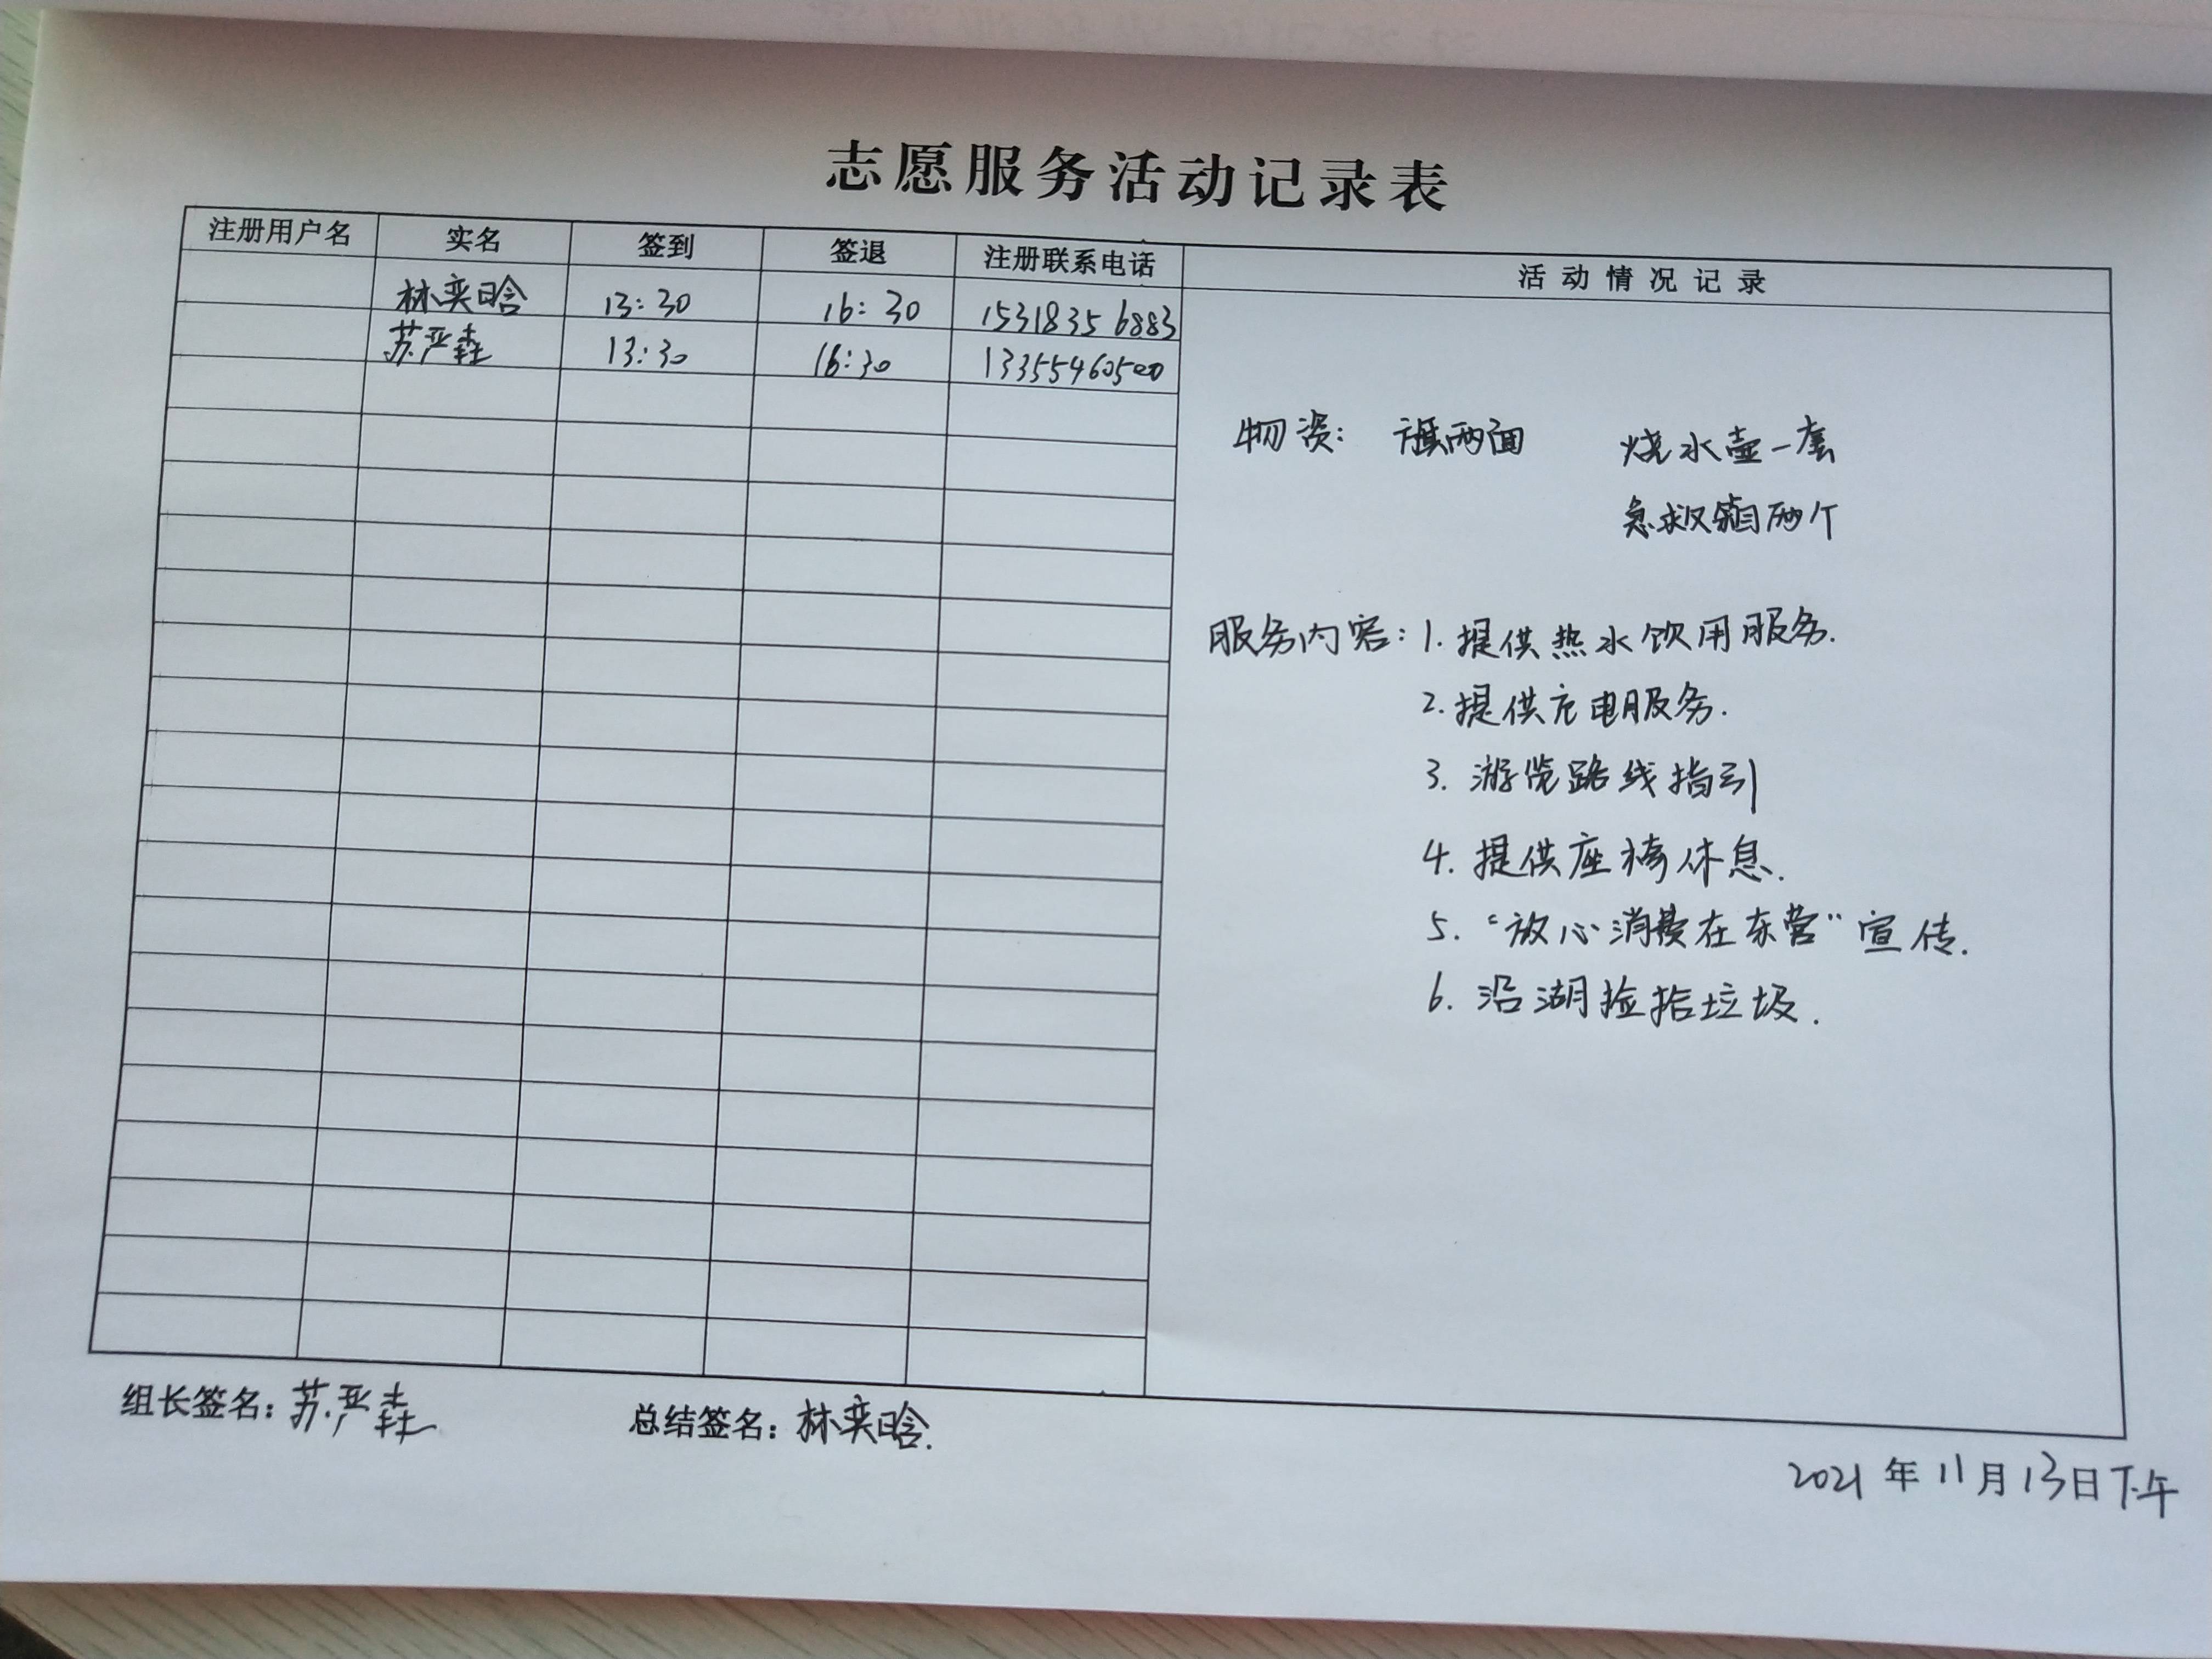 志愿服务活动记录表
注册用户名 实名 签到 签退 注册联系电话 活动情况记录
林奕晗 13:30 16:30 15318356883
苏严森 13:30 16:30 13355460500
物资: 旗两面 烧水壶一套
急救箱两个
服务内容: 1. 提供热水饮用服务.
2. 提供充电服务.
3. 游览路线指引
4. 提供座椅休息.
5. “放心消费在东营”宣传.
6. 沿湖捡拾垃圾.
组长签名: 苏严森 总结签名: 林奕晗.
2021年11月13日下午